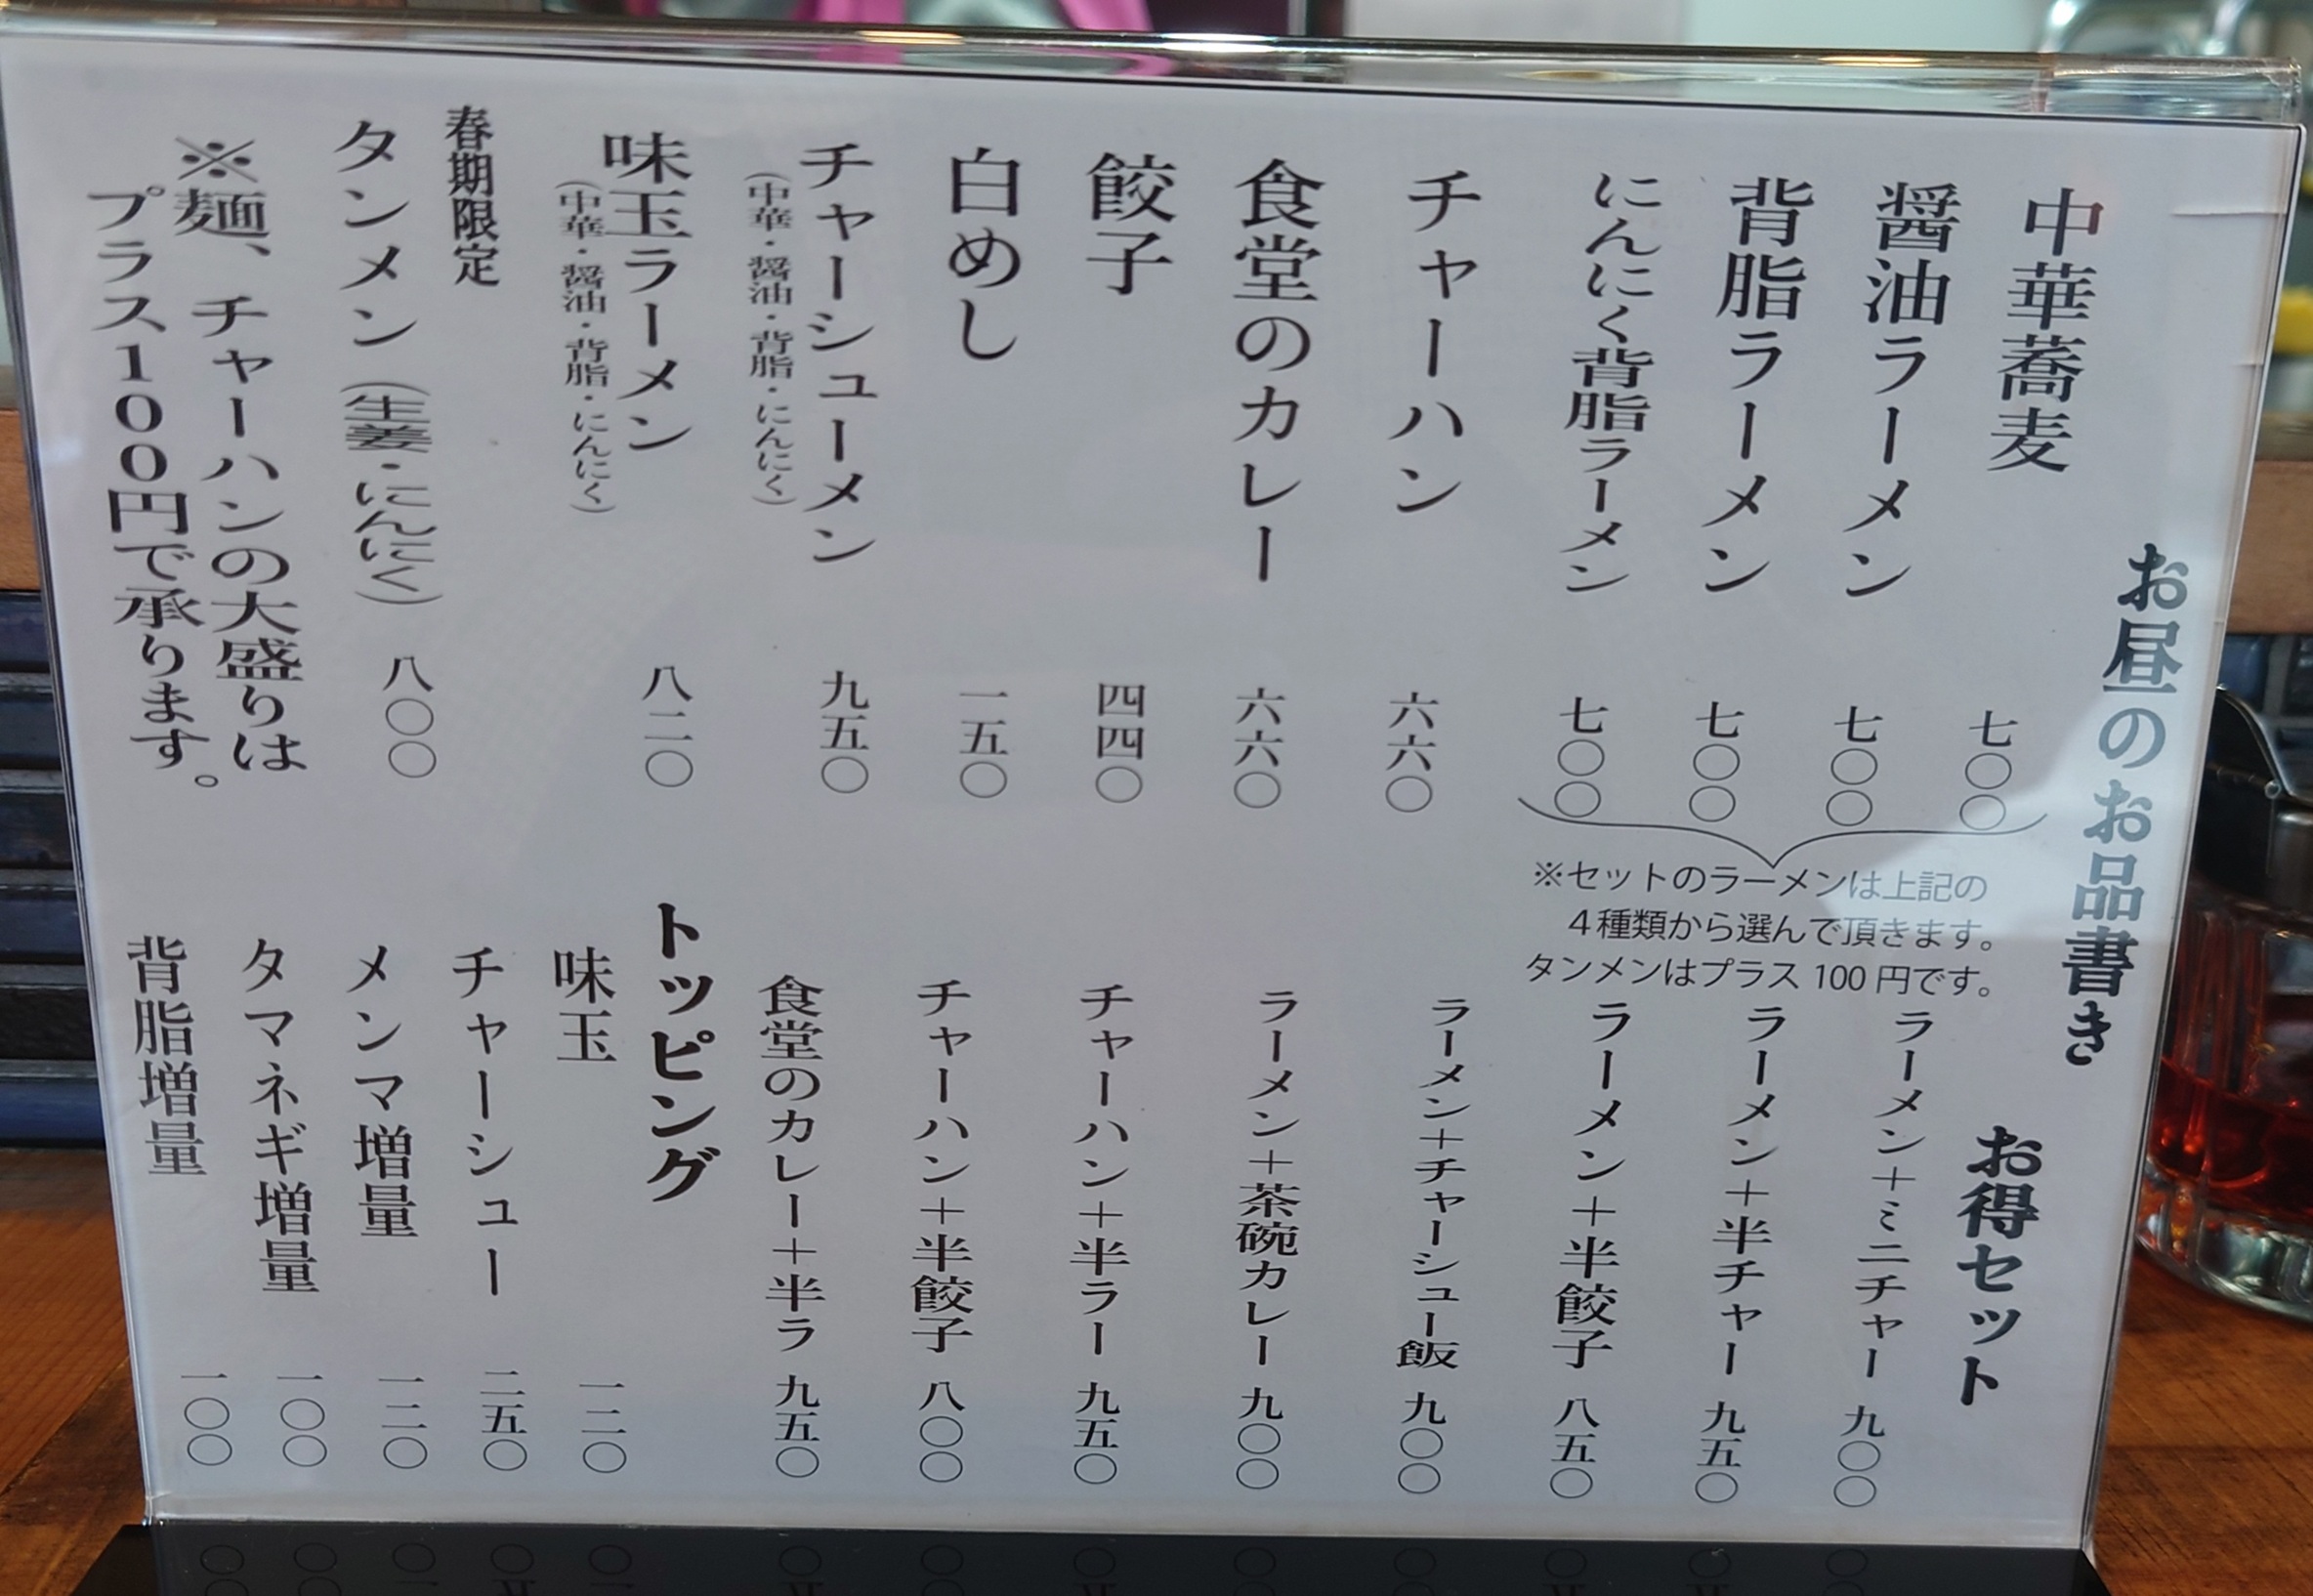 お昼のお品書き
中華蕎麦 七〇〇
醤油ラーメン 七〇〇
背脂ラーメン 七〇〇
にんにく背脂ラーメン 七〇〇
※セットのラーメンは上記の
４種類から選んで頂きます。
タンメンはプラス100円です。
チャーハン 六六〇
食堂のカレー 六六〇
餃子 四四〇
白めし 一五〇
チャーシューメン 九五〇
（中華・醤油・背脂・にんにく）
味玉ラーメン 八二〇
（中華・醤油・背脂・にんにく）
春期限定
タンメン（生姜・にんにく） 八〇〇
※麺、チャーハンの大盛りは
プラス100円で承ります。
お得セット
ラーメン＋ミニチャー 九〇〇
ラーメン＋半チャー 九五〇
ラーメン＋半餃子 八五〇
ラーメン＋チャーシュー飯 九〇〇
ラーメン＋茶碗カレー 九〇〇
チャーハン＋半ラー 九五〇
チャーハン＋半餃子 八〇〇
食堂のカレー＋半ラ 九五〇
トッピング
味玉 一二〇
チャーシュー 二五〇
メンマ増量 一二〇
タマネギ増量 一〇〇
背脂増量 一〇〇